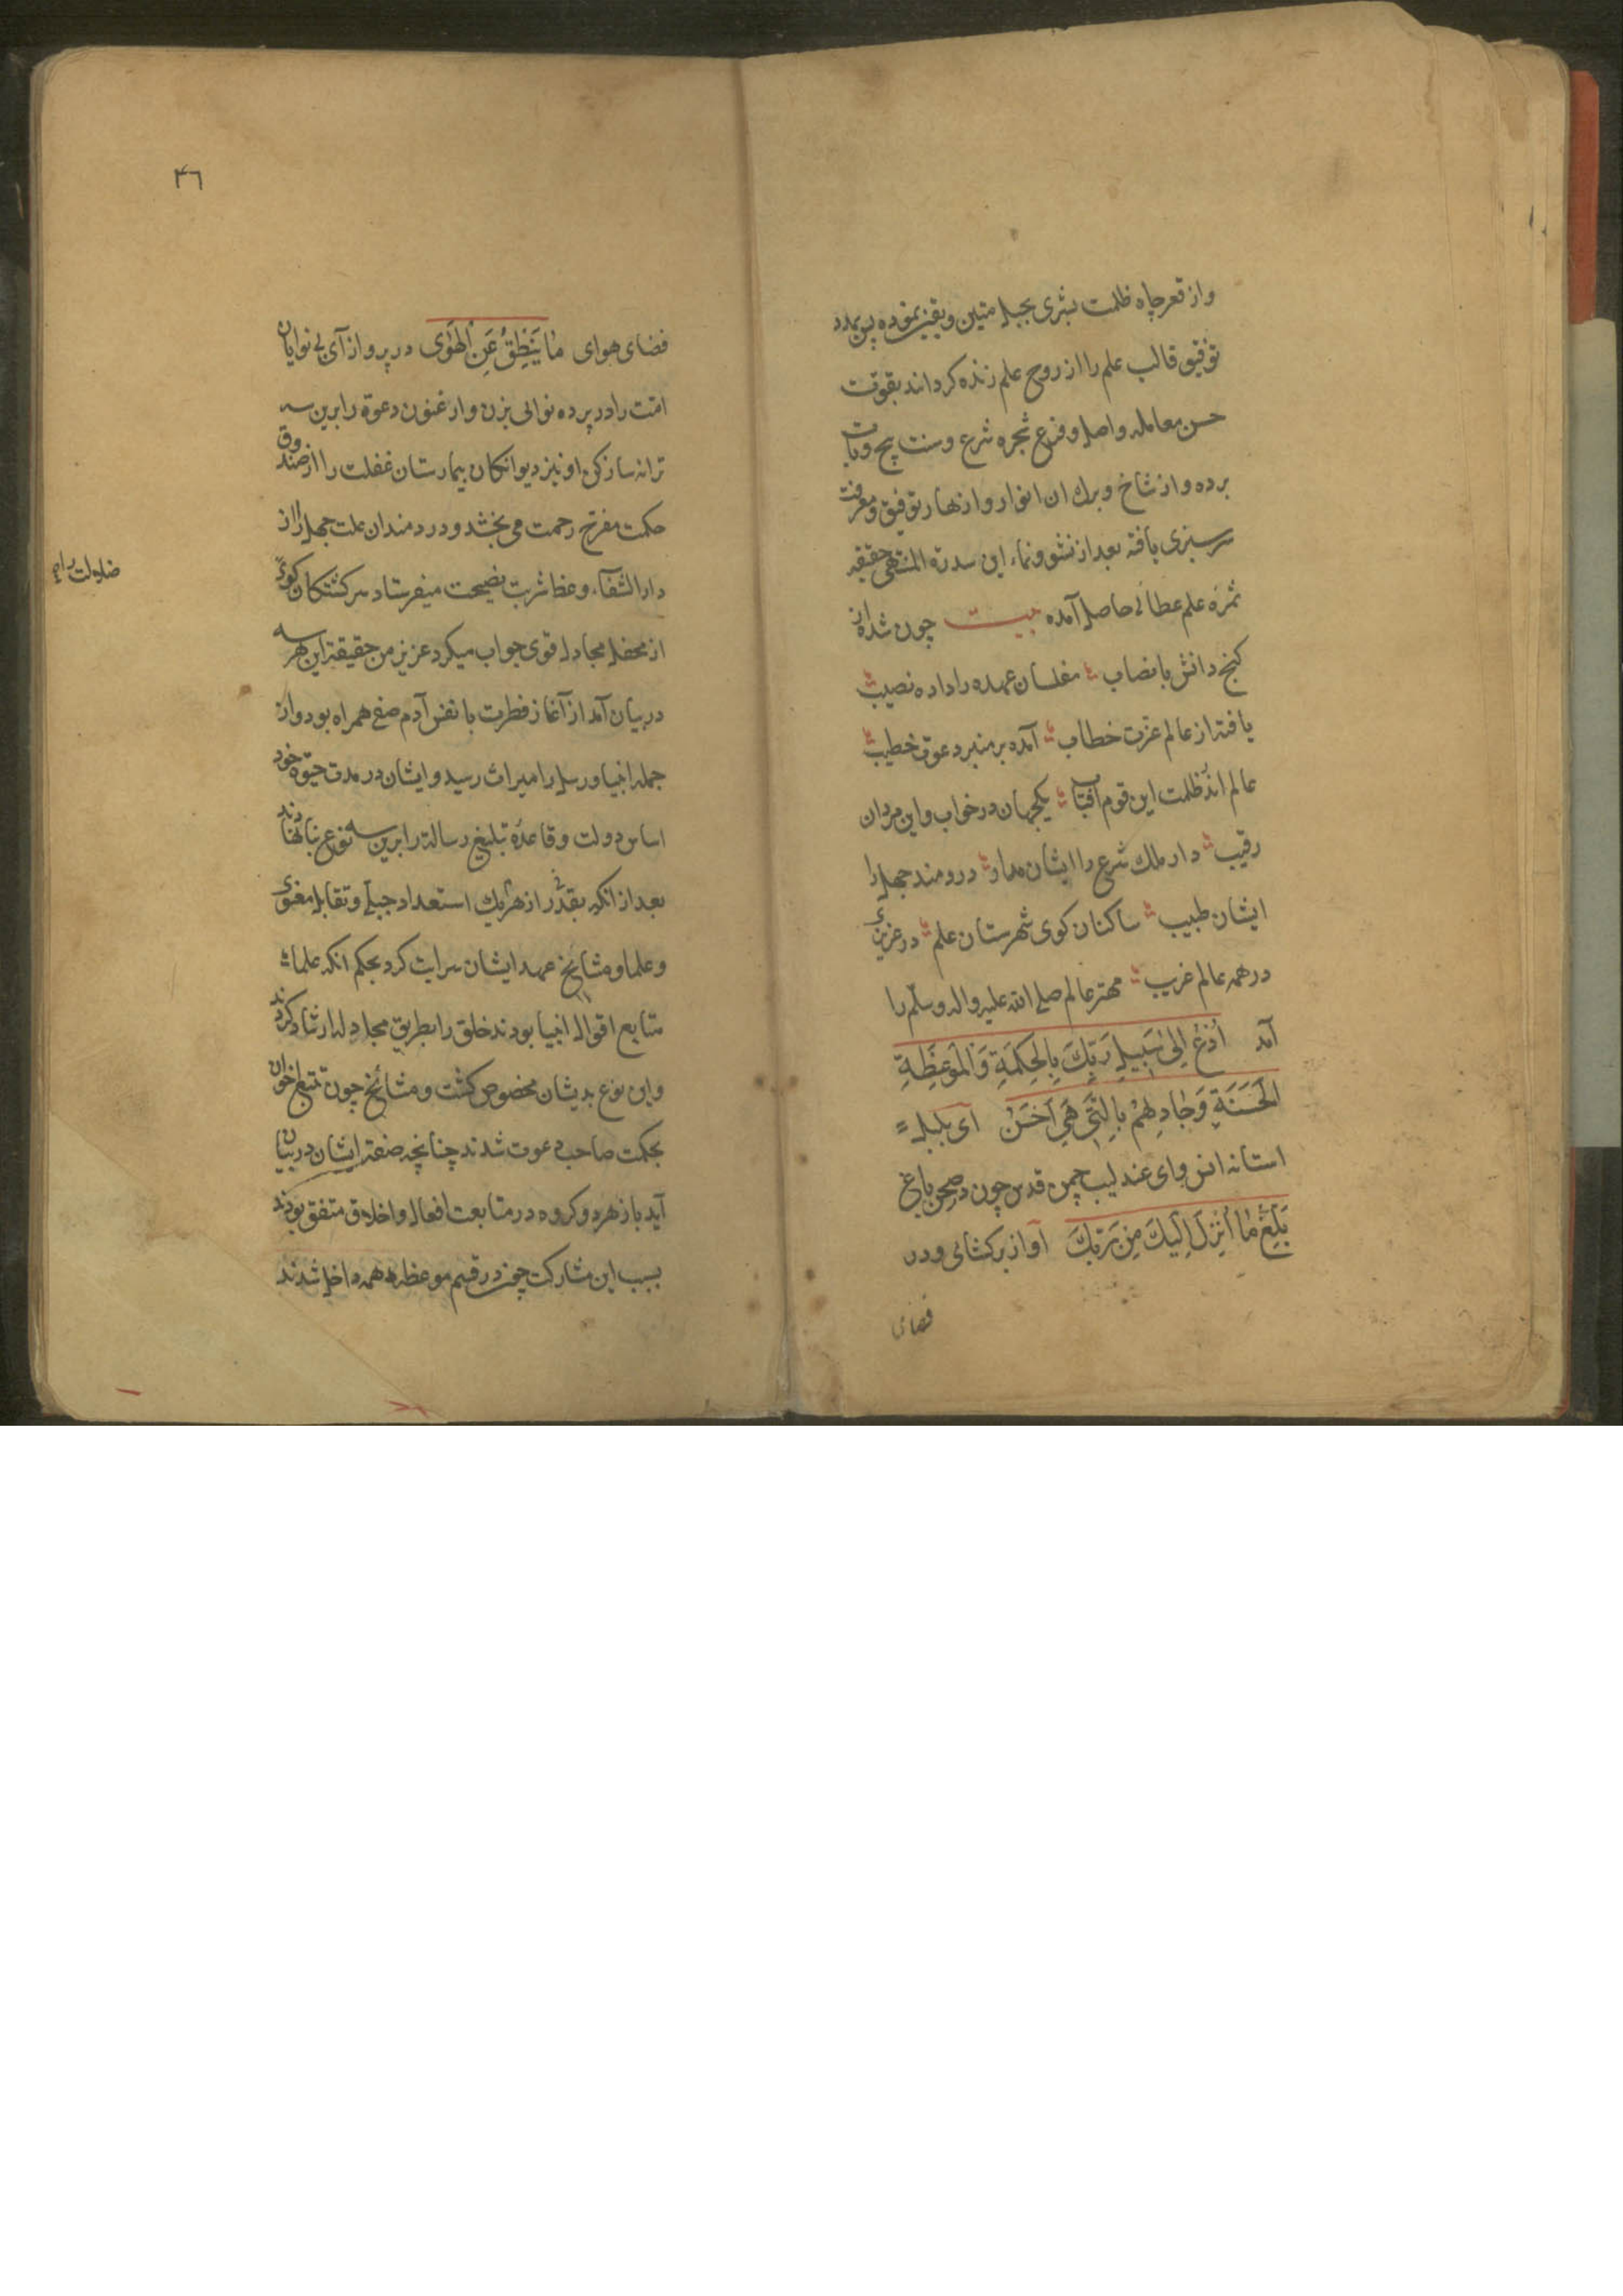 واز قعر چاه ظلمت بشری بحبل متین ویقین نموده پس بمدد
توفیق قالب علم را از روح علم زنده کرداند بقوت
حسن معامله واصل وفرع شجره شرع وسنت پی
برده واز شاخ وبرك ان انوار وازهار توفیق ومعرفت
سرسبزی یافته بعد از نشو ونماء این سدرة المنتهی حقیقه
ثمره علم عطائی حاصل آمده بیت چون شده از
کنج دانش با نصاب مفلسان عهده را داده نصیب
یافته از عالم عزت خطاب آمده بر منبر دعوت خطیب
عالم اند ظلمت این قوم آفتاب یکجهان در خواب واین مردان
رقیب دار ملك شرع را ایشان مدار دردمند جهل را
ایشان طبیب ساکنان کوی شهرستان علم در عزیزی
در همه عالم غریب مهتر عالم صلی الله علیه واله وسلم را
آمد اُدْعُ اِلىٰ سَبِيلِ رَبِّكَ بِالْحِكْمَةِ وَالْمَوْعِظَةِ
الْحَسَنَةِ وَجَادِلْهُمْ بِالَّتِي هِيَ اَحْسَنُ آی بلبل
استانه انس وای عندلیب چمن قدس چون در صحن باغ
بَلِّغْ مٰا اُنْزِلَ اِلَيْكَ مِنْ رَبِّكَ آواز برکشائی ودر
فضای
٤٦
فضای هوای مٰا يَنْطِقُ عَنِ الْهَوٰى در پرواز آی بی نوایان
امت را در پرده نوائی بزن وارغنون دعوة را برین سه
ترانه ساز کن او نیز دیوانکان بیمارستان غفلت را از صندوق
حکمت مفرح رحمت می بخشد ودردمندان علت جهل را از
دار الشفاء وعظ شربت نصیحت میفرستاد سرکشتکان کوی
ضلالت را
از محفل مجادله قوی جواب میکرد عزیز من حقیقة این هر سه
در بیان آمد از آغاز فطرت با نفس آدم صفی همراه بود واز
جمله انبیا ورسل را میراث رسید وایشان در مدت حیوة خود
اساس دولت وقاعده تبلیغ رسالة را برین سه نوع بنا نهادند
بعد از انکه بقدر از هر یك استعداد جبلی وتقابل معنوی
وعلما ومشایخ عهد ایشان سرایت کرد بحکم انکه علما
متابع اقوال انبیا بودند خلق را بطریق مجادله ارشاد کردند
واین نوع بدیشان مخصوص کشت ومشائخ چون
بحکمت صاحب دعوت شدند چنانچه صفة ایشان در بیان
آید باز هر دو کروه در متابعت افعال واخلاق متفق بودند
بسبب این مشارکت در قسم موعظه همه داخل شدند